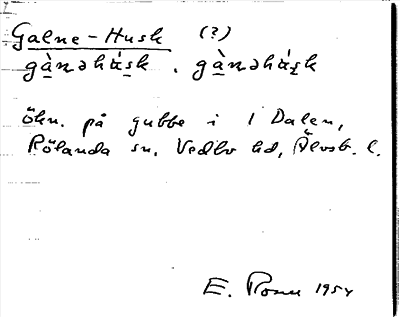 Galne-Husk (?)
gànəhásk . gànəhásk
Öhn. på gubbe i 1 Dalen,
Rölanda sn. Vedbo hd, Älvsb. l.
E. 1954